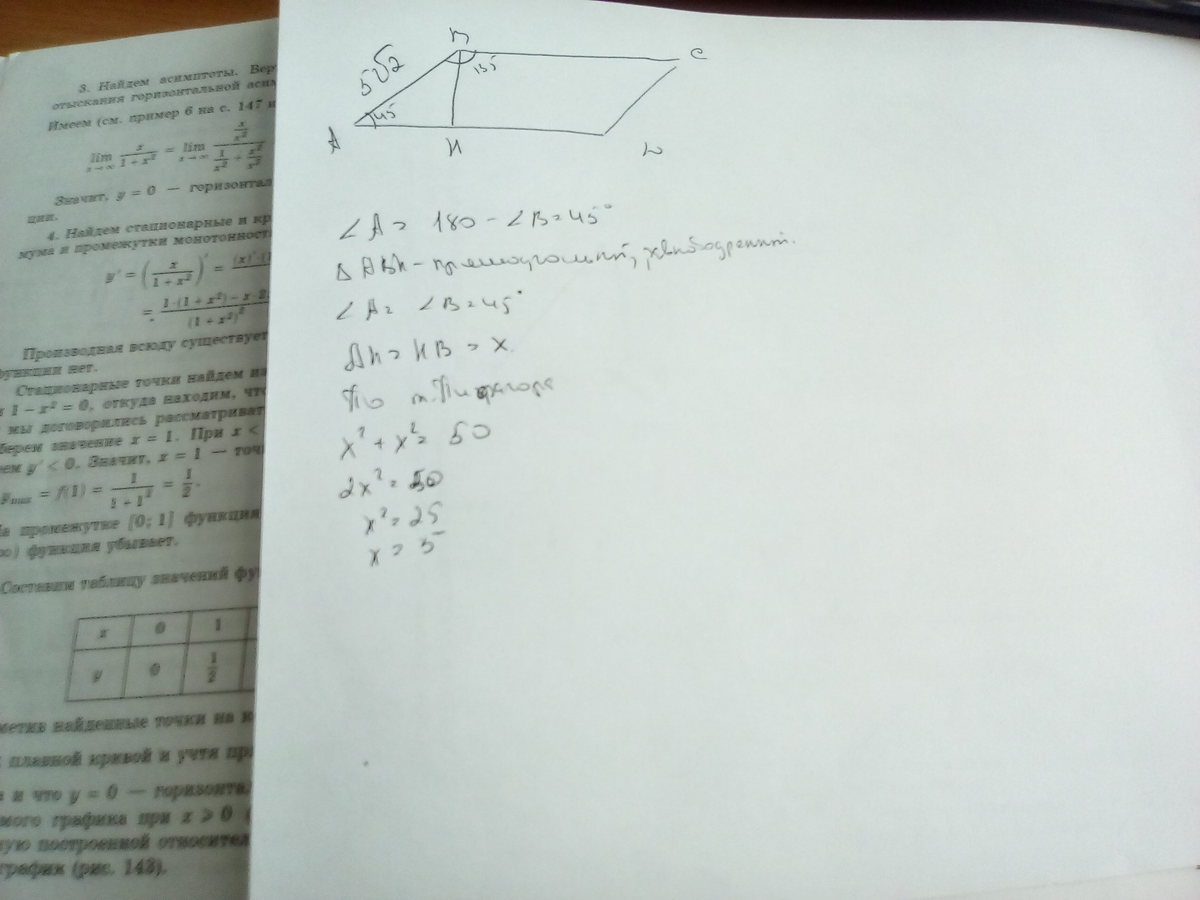 3. Найдем асимптоты. Вер
отыскания горизонтальной асим
Имеем (см. пример 6 на с. 147 и
lim x→∞ x/(1 + x²) = lim x→∞ (x/x²)/(1/x² + x²/x²)
Значит, y = 0 — горизонтал
ции.
4. Найдем стационарные и кр
мума и промежутки монотонност
y' = (x/(1 + x²))' = (x)'·(1
= 1·(1 + x²) − x·2
(1 + x²)²
Производная всюду существует
функции нет.
Стационарные точки найдем из
1 − x² = 0, откуда находим, что
мы договорились рассматриват
берем значение x = 1. При x <
ем y' < 0. Значит, x = 1 — точ
ymax = f(1) = 1/(1 + 1²) = 1/2.
а промежутке [0; 1] функция
∞) функция убывает.
Составим таблицу значений фу
x 0 1
y 0 1/2
метив найденные точки на к
плавной кривой и учтя пр
и что y = 0 — горизонта
мого графика при x ⩾ 0 (
ную построенной относител
график (рис. 143).
B
C
5√2
135
45
A
H
D
∠A = 180 − ∠B = 45°
Δ ABH - прямоугольный, равнобедренный.
∠A = ∠B = 45°
AH = HB = x.
По т. Пифагора
x² + x² = 50
2x² = 50
x² = 25
x = 5